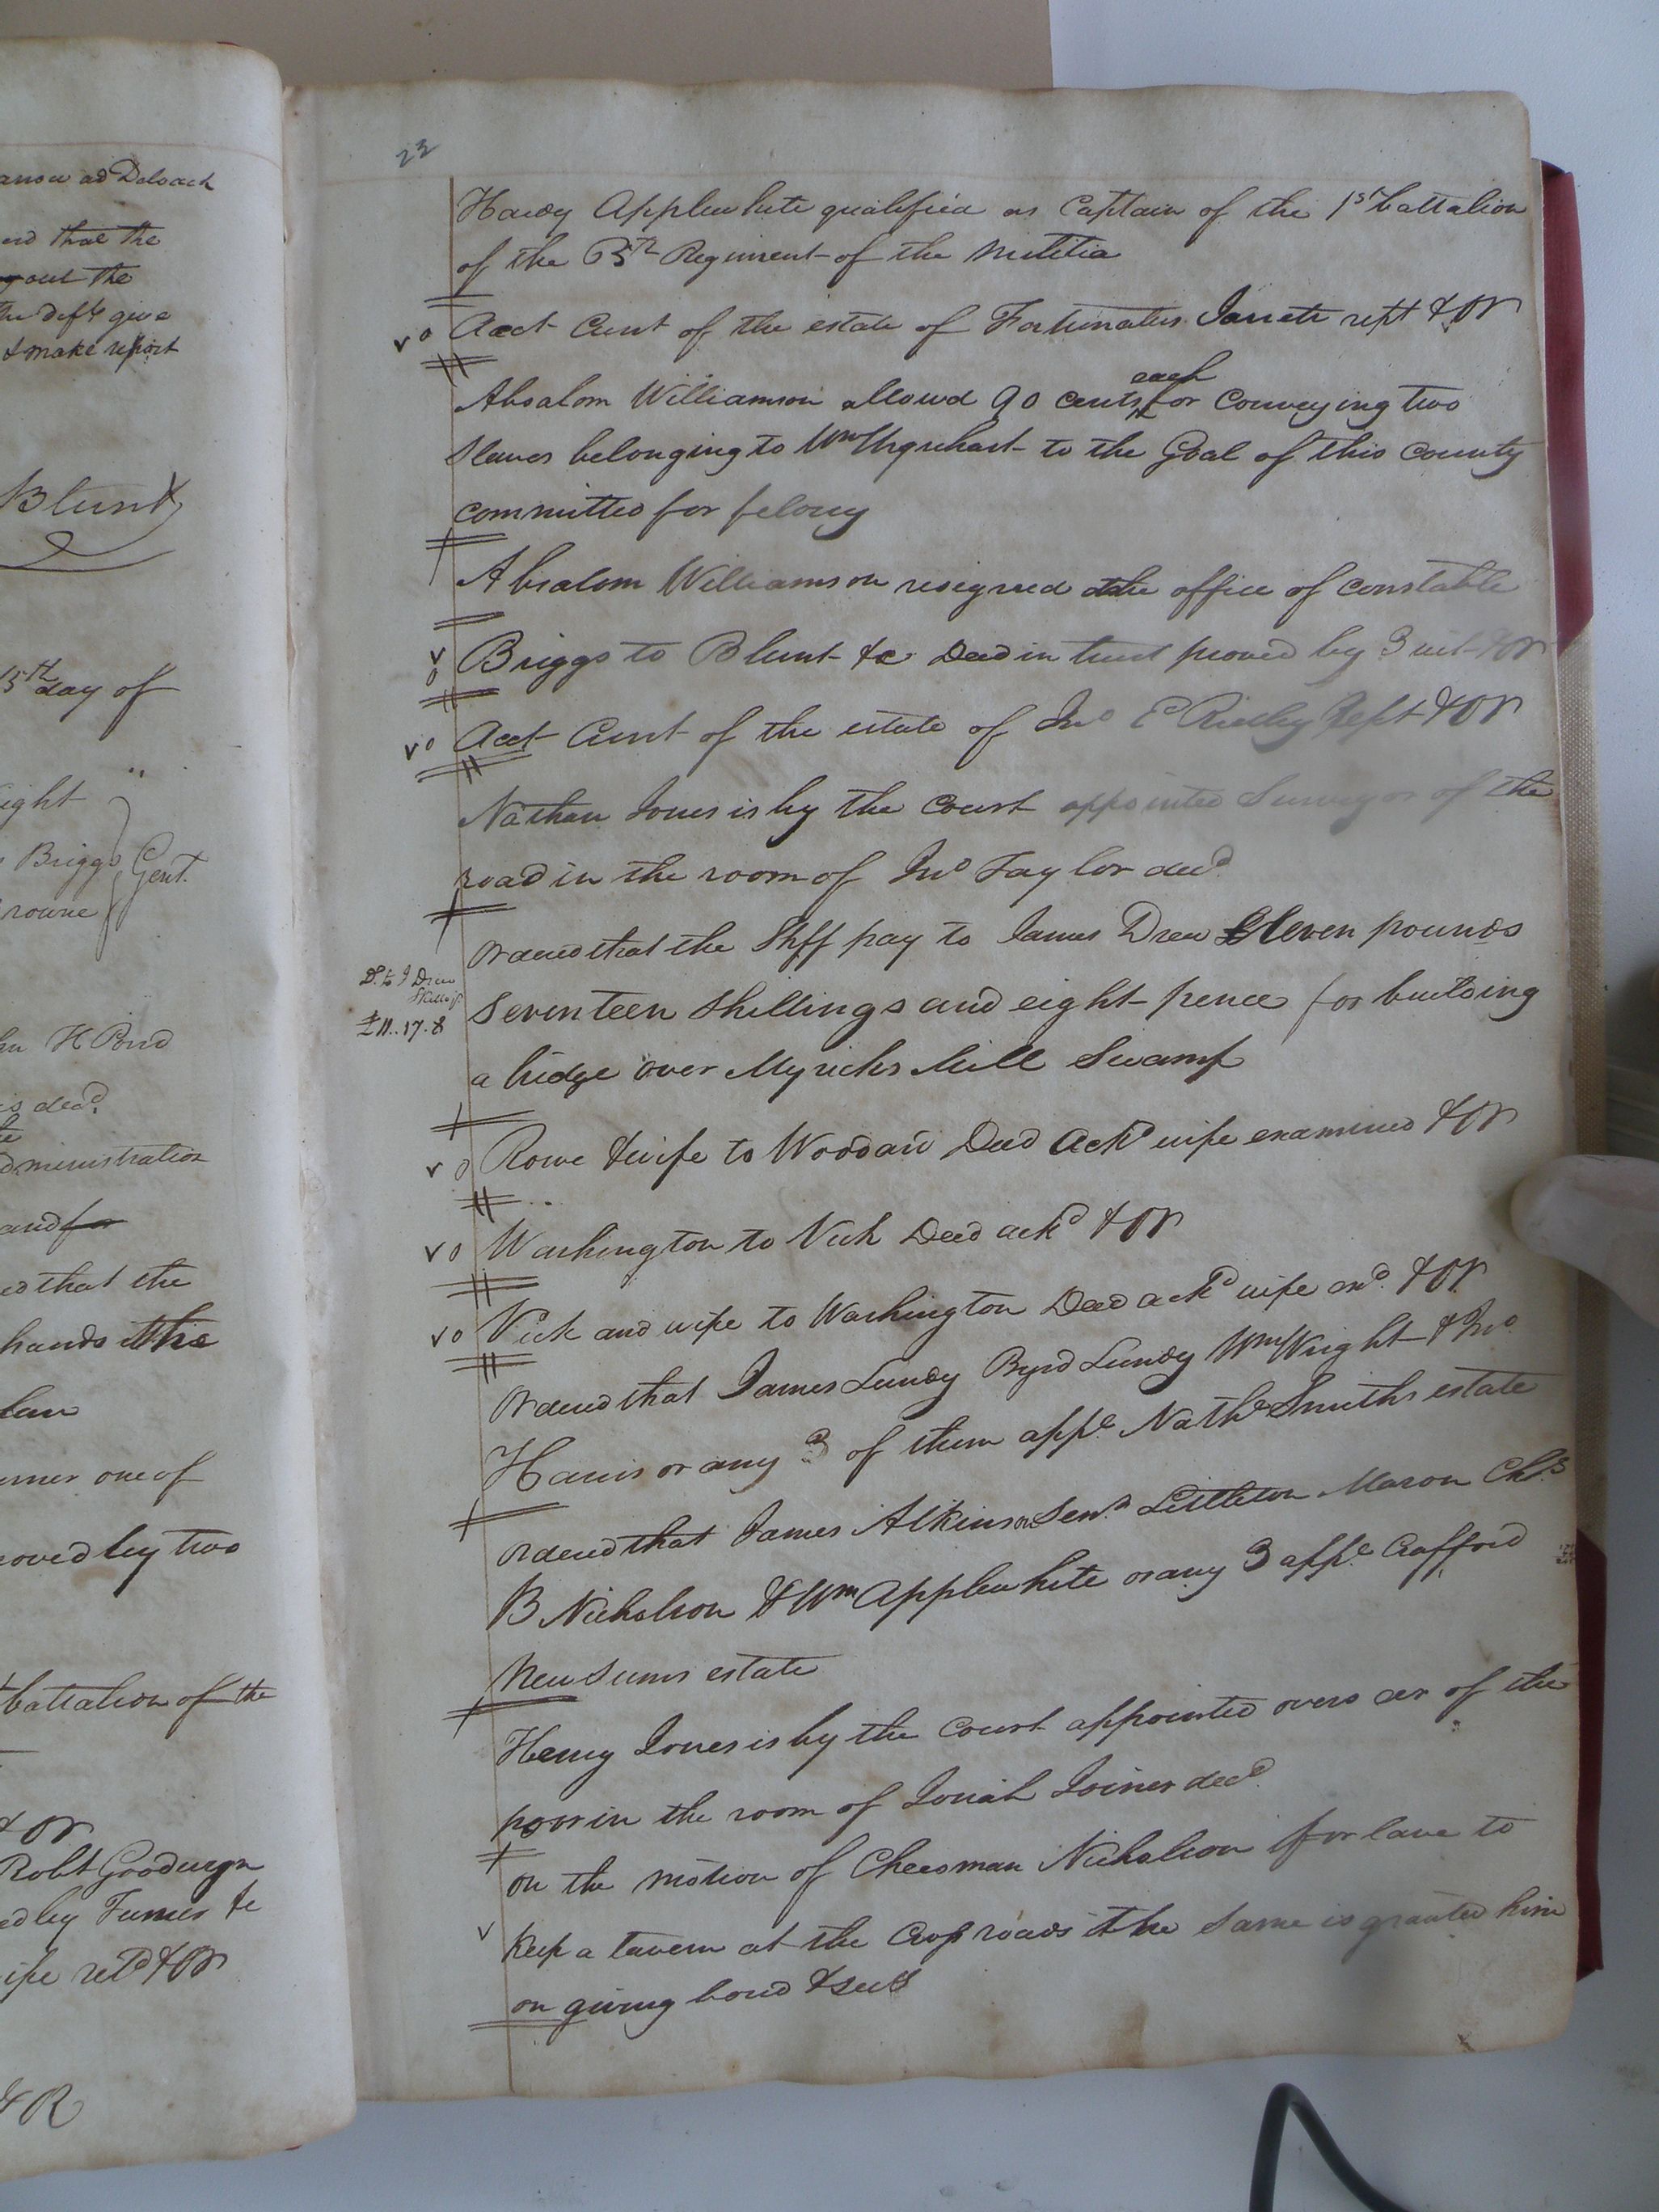 and that the
out the
the defts give
& make report
Blunt
15th day of
Briggs
Gent.
H Pond
decd.
administration
and for
that the
hands the
one of
proved by two
battalion of the
& OR
Robt Goodwyn
retd & OR
23
Hardy Applewhite qualified as Captain of the 1st battalion
of the 65th Regiment of the militia
vo Acct Curnt of the estate of Fortunatus Jarrett rept & OR
each
Absalom Williamson allowd 90 cents for conveying two
slaves belonging to Wm Urquhart to the Goal of this county
committed for felony
Absalom Williamson resigned the office of constable
vo Briggs to Blunt &c Deed in trust proved by 3 wit & OR
vo Acct Curnt of the estate of Jno E Ridley rept & OR
Nathan Jones is by the court appointed Surveyor of the
road in the room of Jno Taylor decd
ordered that the Shff pay to James Drew Eleven pounds
D. to J Drew
£11..17.8
Seventeen Shillings and eight pence for building
a bridge over Myricks Mill Swamp
vo Rowe & wife to Woodard Deed Ackd wife examined & OR
vo Washington to Vick Deed ackd & OR
vo Vick and wife to Washington Deed ackd wife exd. & OR
ordered that James Lundy Byrd Lundy Wm Wright & Jno
Harris or any 3 of them appe. Nathl Smiths estate
ordered that James Atkinson Senr Littleton Mason Chs
B Nicholson & Wm Applewhite or any 3 appe Crafford
Newsums estate
Henry Jones is by the court appointed overseer of the
poor in the room of Josiah Joiner decd
on the motion of Cheesman Nicholson for leave to
v keep a tavern at the Cross roads the same is granted him
on giving bond & secy